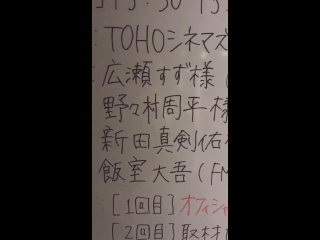 15:30 15
:TOHOシネマズ
:広瀬すず様(
野々村周平様
新田真剣佑
飯室大吾(FM
:[1回目]オフィシャ
:[2回目]取材